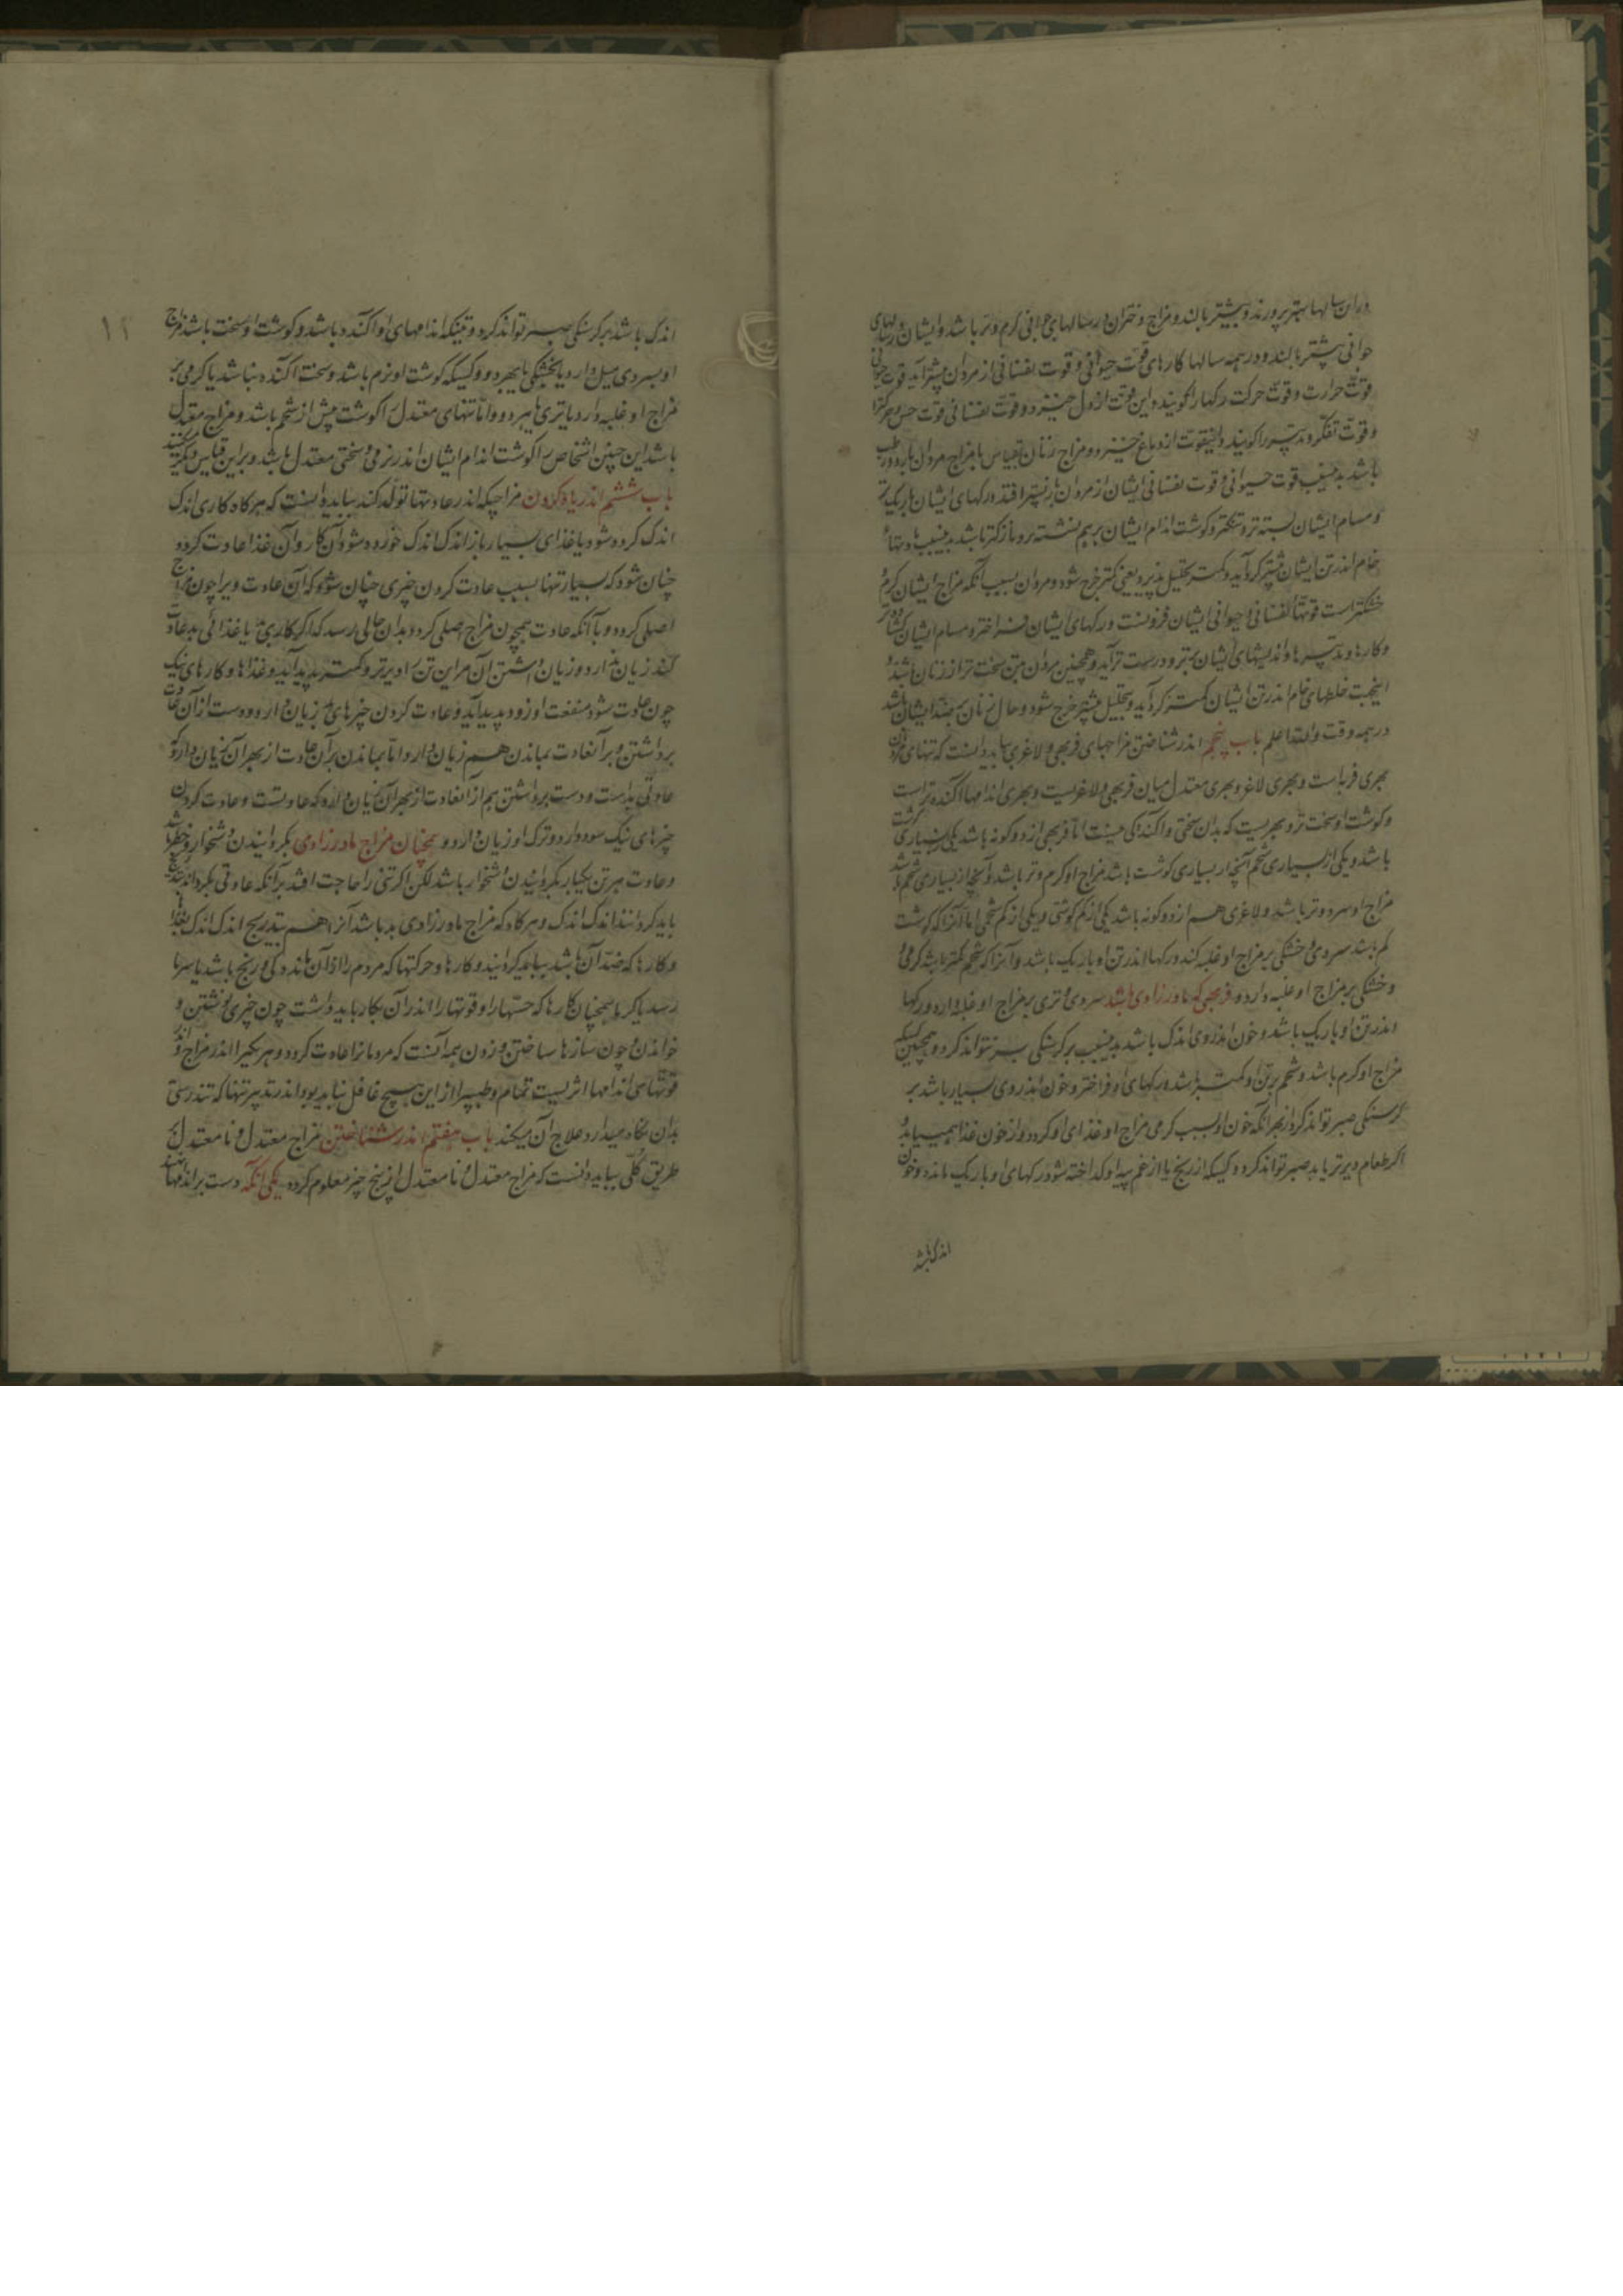 دران سالها بهتر پرورند و بیشتر بالند و مزاج دختران در سالهای جوانی گرم و تر باشد و ایشان در سالهای
جوانی بیشتر بالند و در همه سالها کارهای قوت حیوانی و قوت نفسانی از مردان بیشتر آید قوت حیوانی
قوت حرارت و قوت حرکت رکها را گویند و این قوت از دل خیزد و قوت نفسانی قوت حس و حرکت را
و قوت تفکر و تدبیر را گویند و اینقوت از دماغ خیزد و مزاج زنان بقیاس با مزاج مردان بارد و رطب
باشد بدینسبب قوت حیوانی و قوت نفسانی ایشان از مردان باز پستر افتد و رکهای ایشان باریکتر
و مسام ایشان بسته تر و تنکتر و گوشت اندام ایشان برهم نشسته تر و نازکتر باشد بدینسبب مادتهاء
خام اندر تن ایشان بیشتر گرد آید و کمتر تحلیل پذیرد یعنی کمتر خرج شود و مردان بسبب آنکه مزاج ایشان گرم و
خشکتر است قوتهاء نفسانی و حیوانی ایشان فزونست و رکهای ایشان فراختر و مسام ایشان کشاده تر
و کارها و تدبیرها و اندیشهای ایشان بهتر و درست تر آید و همچنین مردان بتن سخت تر از زنان باشند و
اینجهت خلطهای خام اندر تن ایشان کمتر گرد آید و بتحلیل بیشتر خرج شود و حال زنان بر ضد ایشان باشد
در همه وقت والله اعلم باب پنجم اندر شناختن مزاجهای فربهی و لاغری بباید دانست که تنهای مردمان
بهری فربه است و بهری لاغر و بهری معتدل میان فربهی و لاغریست و بهری اندامها آکنده تر است
و گوشت او سخت تر و بهریست که بدان سختی و آکندگی نیست اما فربهی از دو گونه باشد یکی بسیاری گوشت
باشد و یکی از بسیاری شحم آنچه از بسیاری گوشت باشد مزاج او گرم و تر باشد و آنچه از بسیاری شحم باشد
مزاج او سرد و تر باشد و لاغری هم از دو گونه باشد یکی از کم گوشتی و یکی از کم شحمی اما آنرا که گوشت
کم باشد سردی و خشکی بر مزاج او غلبه کند و رکها اندر تن او باریک باشد و آنرا که شحم کمتر باشد گرمی و
و خشکی بر مزاج او غلبه دارد و فربهی که مادرزادی باشد سردی و تری بر مزاج او غلبه دارد و رکها
اندر تن او باریک باشد و خون اندر وی اندک باشد بدینسبب بر گرسنگی صبر نتواند کرد و همچنین کسیکه
مزاج او گرم باشد و شحم بر تن او کمتر باشد و رکهای او فراختر و خون اندر وی بسیار باشد بر
گرسنگی صبر تواند کرد از بهر آنکه خون او بسبب گرمی مزاج او غذای او گردد و از خون غذا همییابد و
اگر طعام دیرتر یابد صبر تواند کرد و کسیکه از رنج یا از غم پیه او گداخته شود رکهای او باریک مانده و خون
اندک باشد
۱۲
اندک باشد بر گرسنگی صبر تواند کرد و تنیکه اندامهای او آکنده باشد و گوشت او سخت باشد مزاج
او بسردی میل دارد یا بخشکی یا بهر دو و کسیکه گوشت او نرم باشد و سخت آکنده نباشد یا گرمی بر
مزاج او غلبه دارد یا تری یا هر دو و اما تنهای معتدل را گوشت بیش از شحم باشد و مزاج معتدل
باشد این چنین اشخاص را گوشت اندام ایشان اندر نرمی و سختی معتدل باشد و برین قیاس میگیرند
باب ششم اندر یاد کردن مزاجیکه اندر عادتها تولد کند بباید دانست که هرگاه کاری اندک
اندک کرده شود یا غذای بسیار باز اندک اندک خورده شود آن کار و آن غذا عادت گردد
چنان شود که بسیار تنها بسبب عادت کردن چیزی چنان شود که آن عادت ویرا چون مزاج
اصلی گردد و با آنکه عادت همچون مزاج اصلی گردد بدان حالی رسد که اگر کاری بد یا غذائی بد عادت
کند زیان ندارد و زیان داشتن آن مر این تن را دیرتر و کمتر پدید آید و غذاها و کارهای نیک
چون عادت شود منفعت او زود پدید آید و عادت کردن چیزهای بد زیان دارد و دست از آن عادت
برداشتن و بر آنعادت بماندن هم زیان دارد اما بماندن بر آن عادت از بهر آن زیان دارد که
عادتی بد است و دست برداشتن هم از آنعادت از بهر آن زیان دارد که عادتست و عادت کردن
چیزهای نیک سود دارد و ترک او زیان دارد و همچنان مزاج مادرزادی بگردانیدن دشخوار و خطر باشد
و عادت هر تن یکبار بگردانیدن دشخوار باشد لکن اگر تنی را حاجت افتد بر آنکه عادتی بگرداند بتدریج
باید گردانند اندک اندک و هرگاه که مزاج مادرزادی بد باشد آنرا هم بتدریج اندک اندک بغذاها
و کارها که ضد آن باشد بباید گردانید و کارها و حرکتها که مردم را از آن ماندگی و رنج باشد یا سرما
رسد یا گرما همچنان کارها که حسّها را و قوتها را اندر آن بکار باید داشت چون چیزی نوشتن و
خواندن و چون سازها ساختن و زدن همه آنست که مردمانرا عادت گردد و هر یکیرا اندر مزاج و اندر
قوتهای اندامها اثریست تمام و طبیب را از این هیچ غافل نباید بود اندر تدبیر تنها که تندرستی
بدان نگاه میدارد و علاج آن میکند باب هفتم اندر شناختن مزاج معتدل و نا معتدل بر
طریق کلی بباید دانست که مزاج معتدل و نا معتدل از پنج چیز معلوم گردد یکی آنکه دست بر اندامها